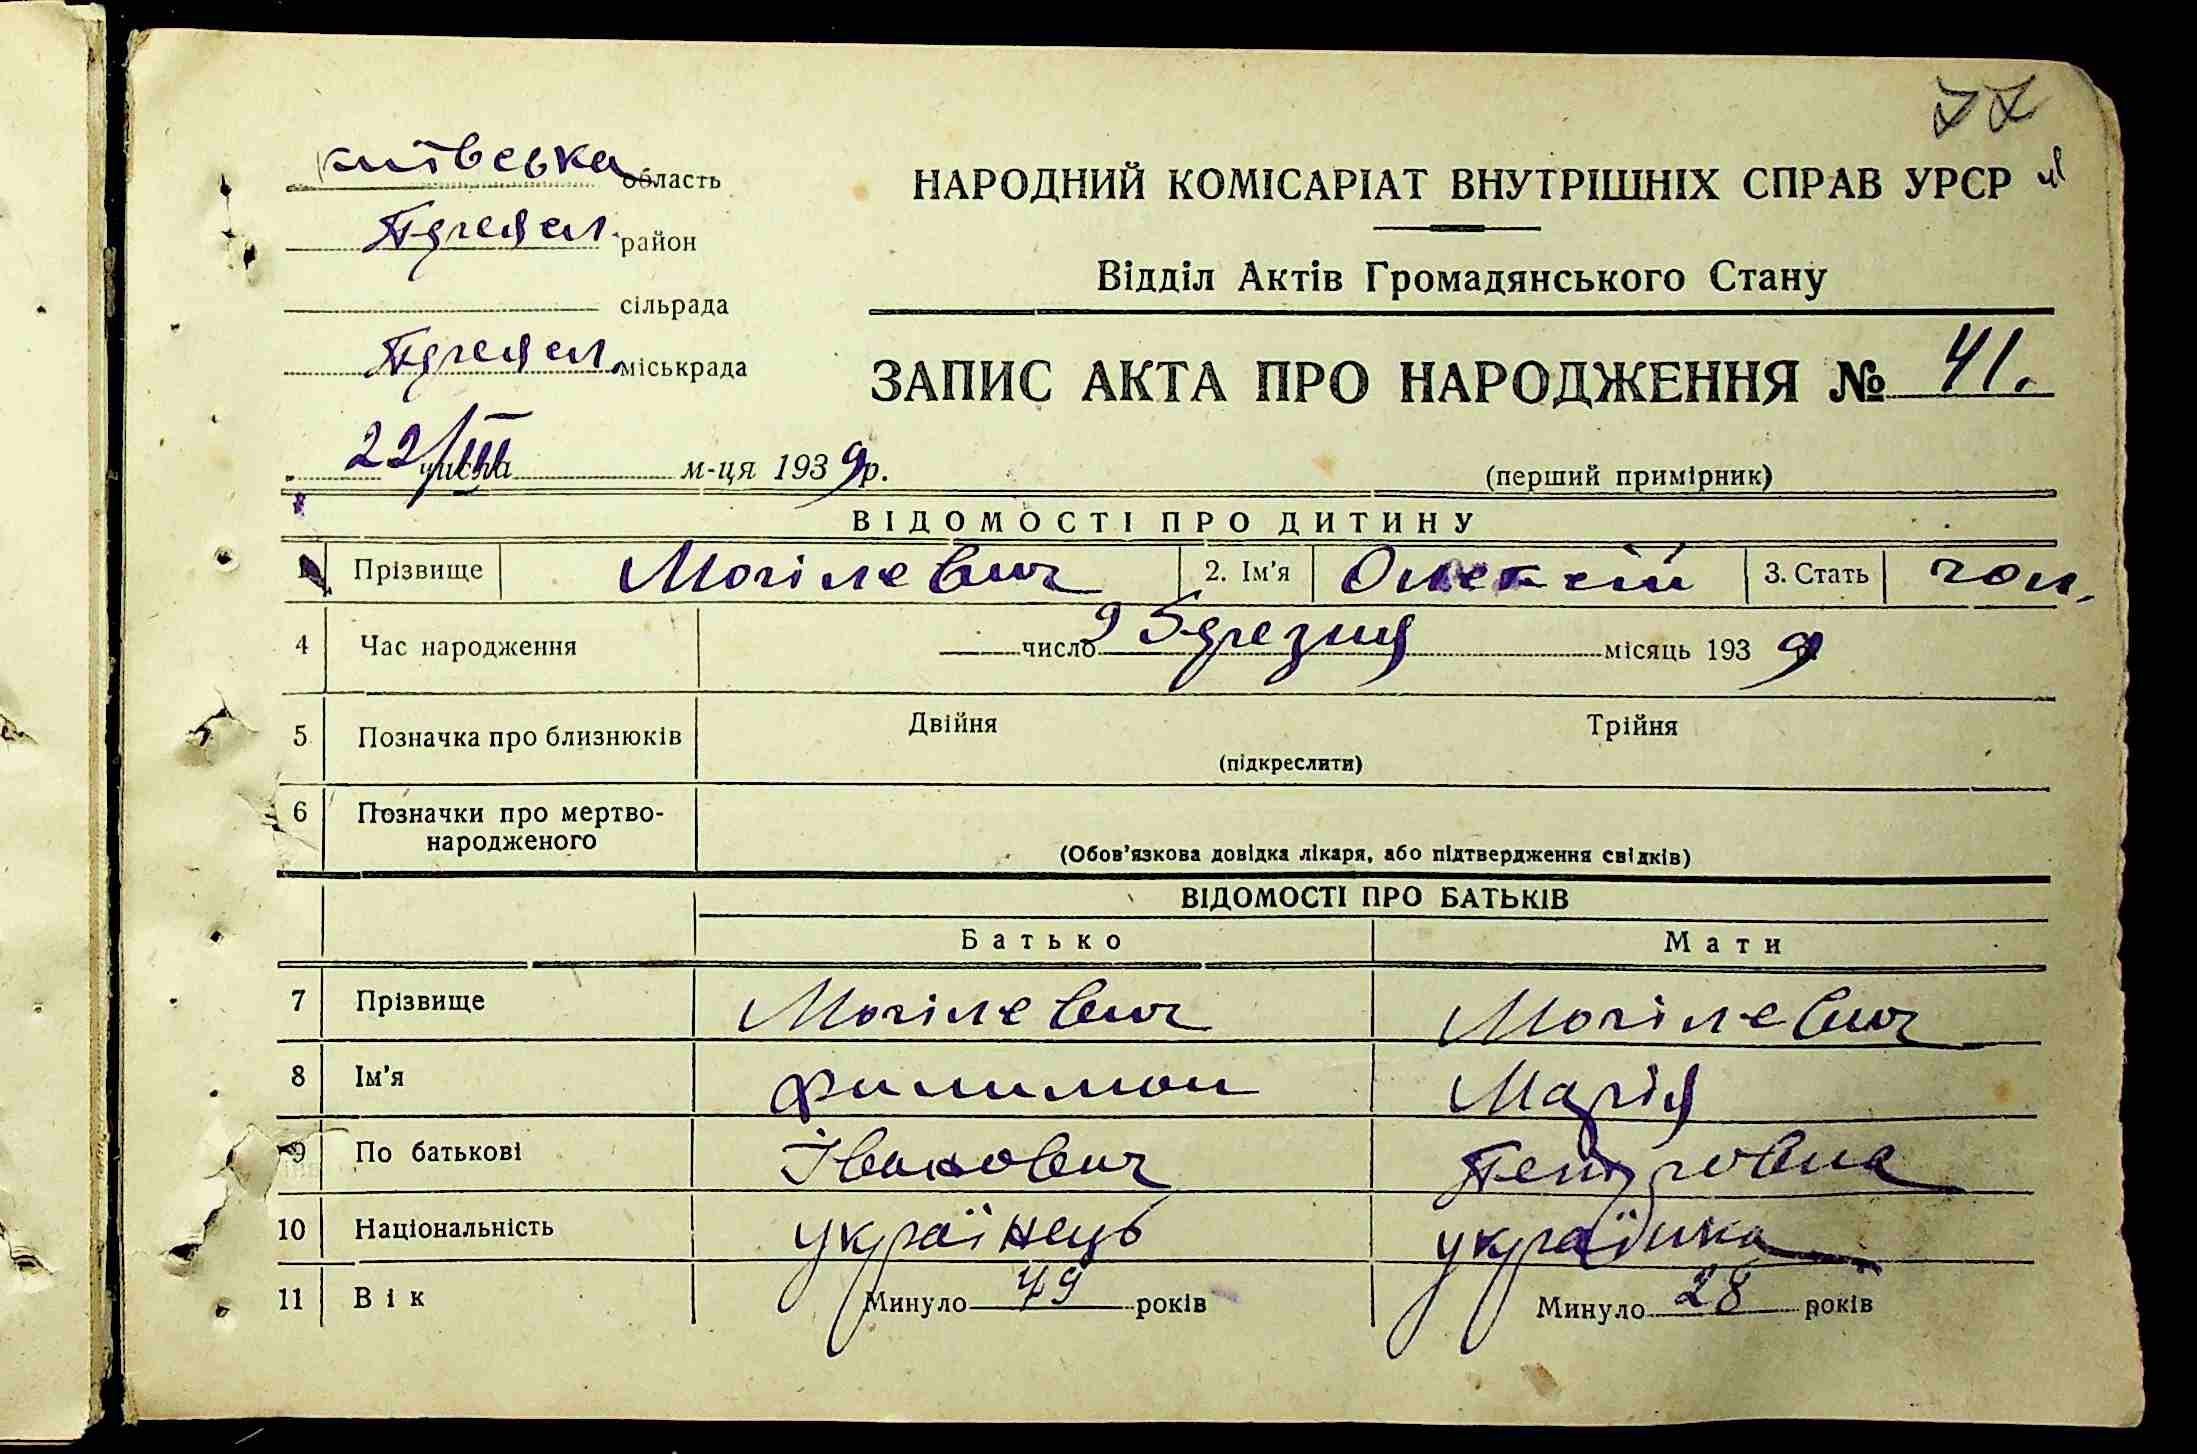 77
київська область
НАРОДНИЙ КОМІСАРІАТ ВНУТРІШНІХ СПРАВ УРСР
район
Відділ Актів Громадянського Стану
сільрада
міськрада
ЗАПИС АКТА ПРО НАРОДЖЕННЯ № 41.
22/III числа м-ця 1939 р.
(перший примірник)
ВІДОМОСТІ ПРО ДИТИНУ
1 Прізвище Могілевич 2. Ім'я Олексій 3. Стать чол.
4 Час народження число 9 березня місяць 1939
5 Позначка про близнюків Двійня Трійня
(підкреслити)
6 Позначки про мертво-
народженого
(Обов'язкова довідка лікаря, або підтвердження свідків)
ВІДОМОСТІ ПРО БАТЬКІВ
Батько Мати
7 Прізвище Могілевич Могілевич
8 Ім'я Филимон Марія
9 По батькові Іванович Петровна
10 Національність українець українка
11 Вік Минуло 49 років Минуло 28 років